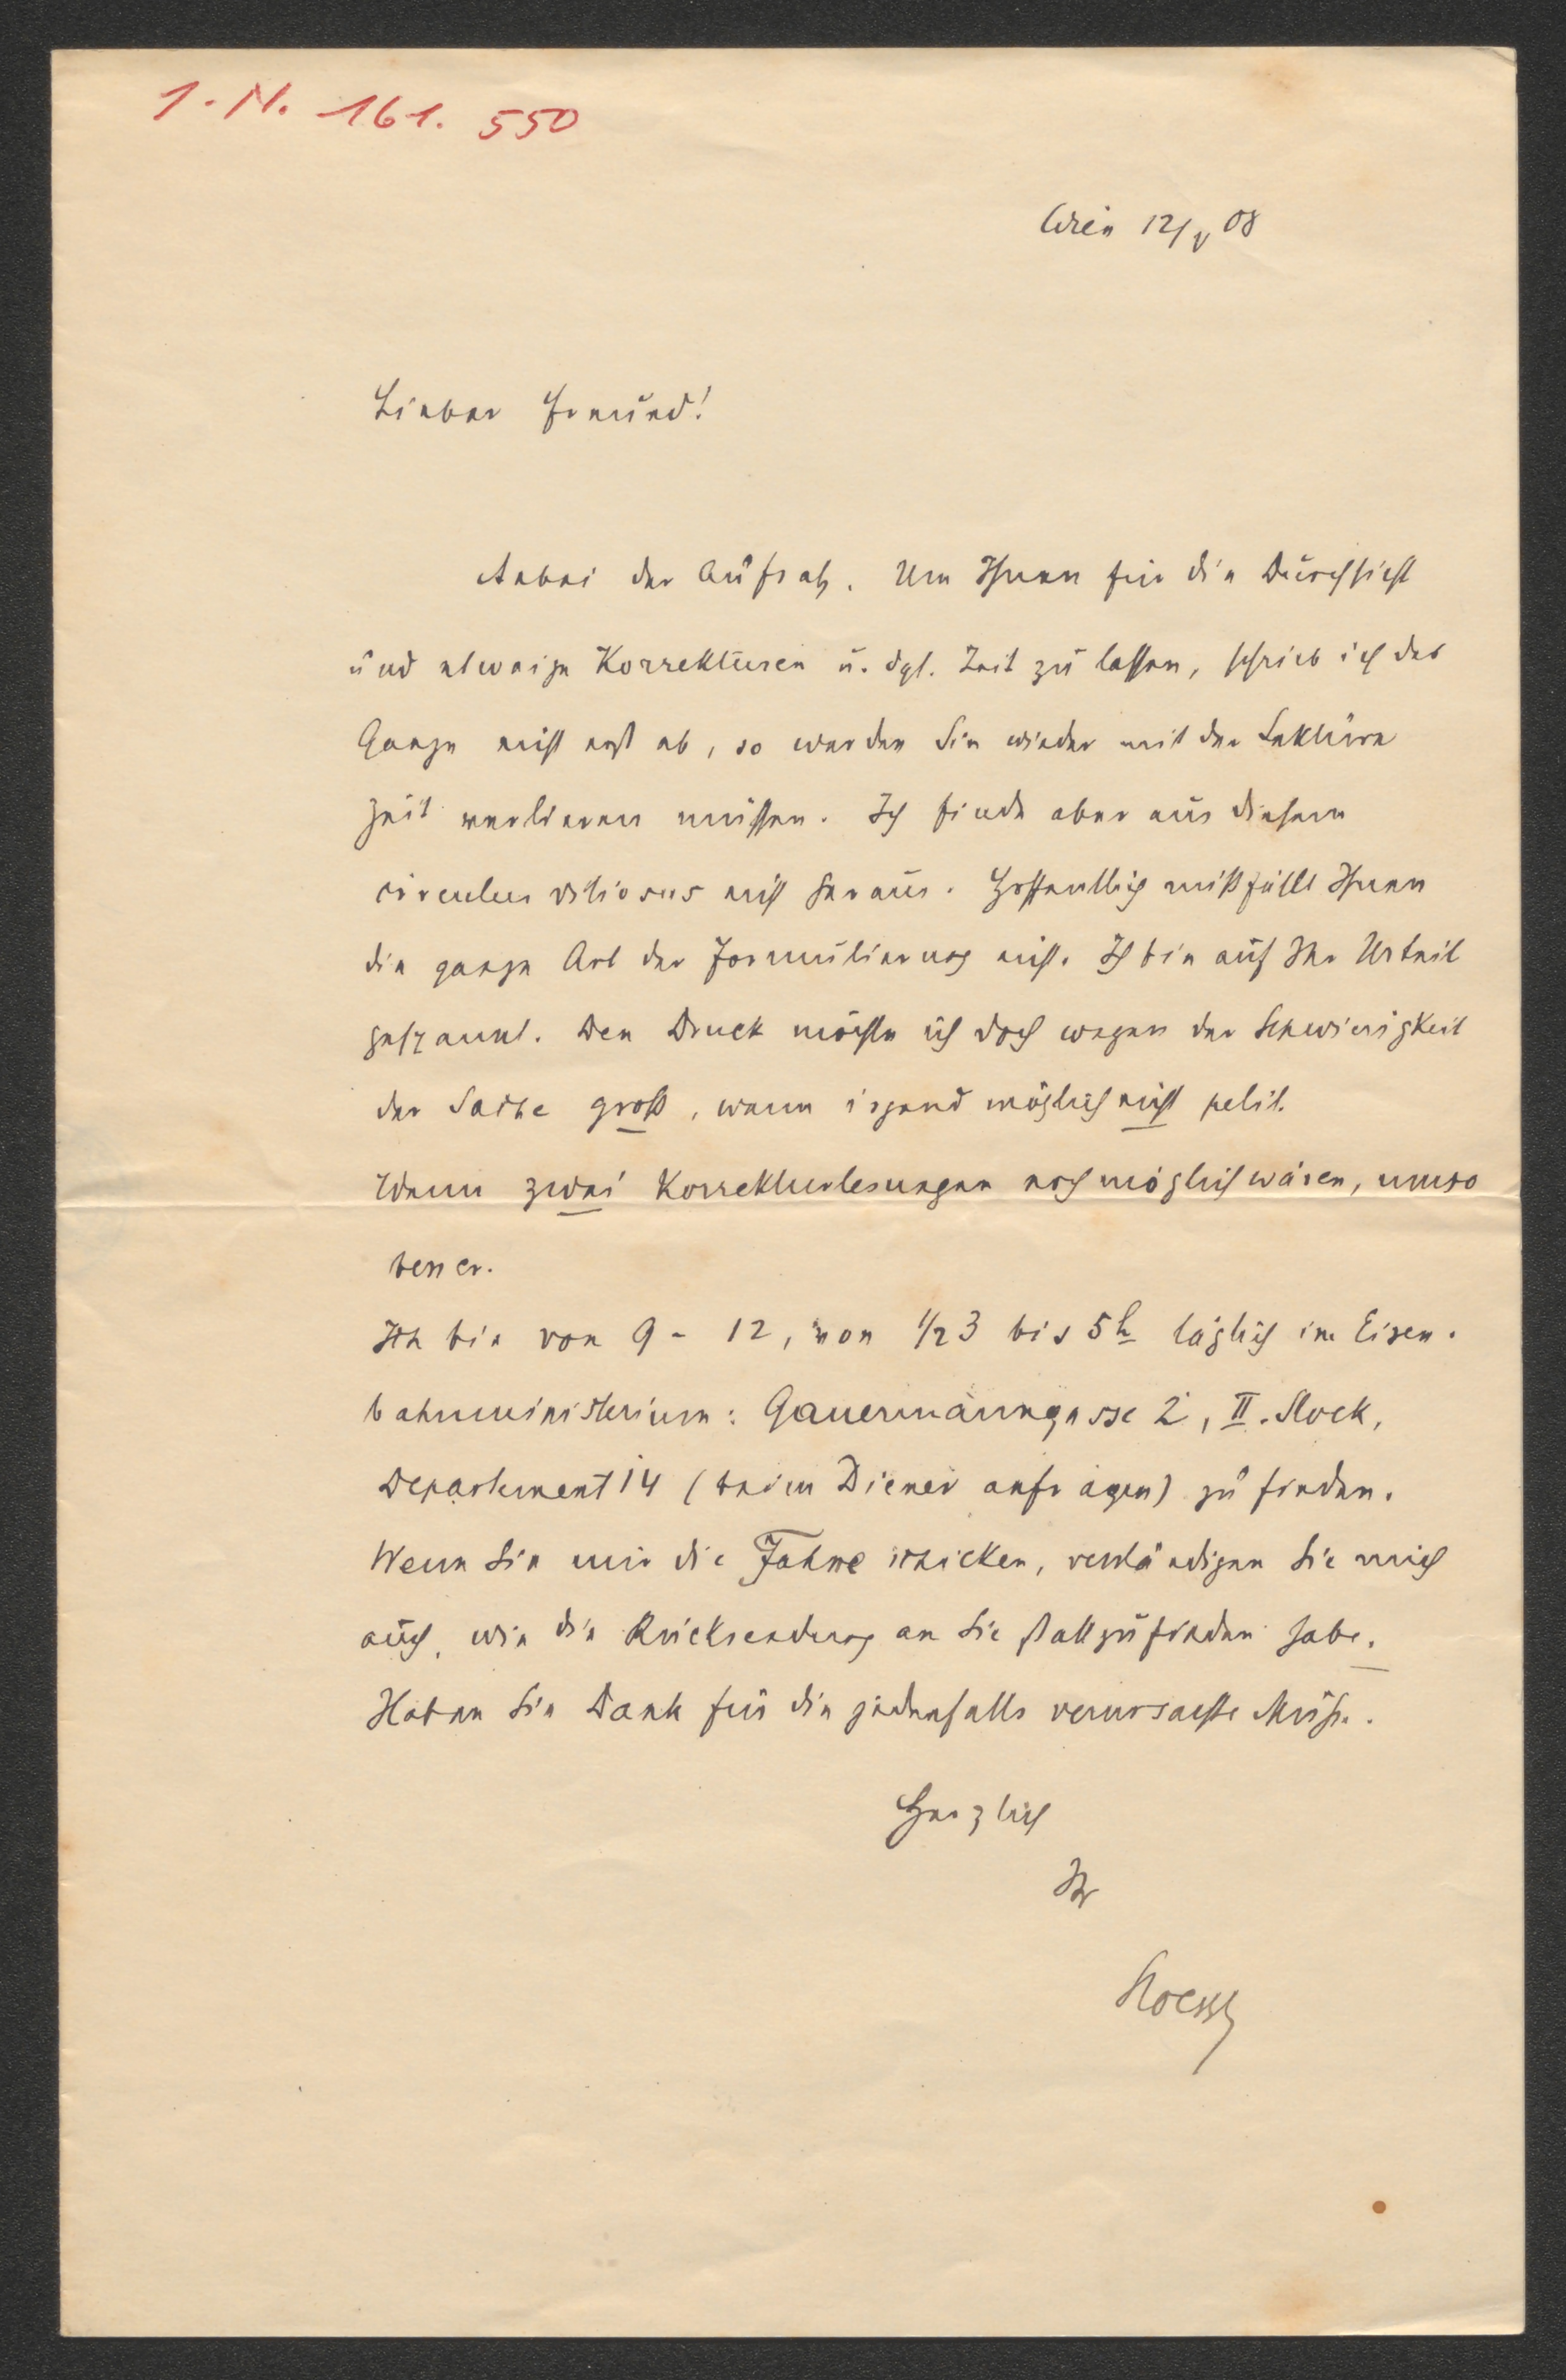 I. N. 161.550
Wien 12/V 08
Lieber Freund!
Anbei der Aufsatz. Um Ihnen für die Durchsicht
und etwaige Korrekturen u. dgl. Zeit zu lassen, schrieb ich das
Ganze nicht erst ab, so werden Sie wieder mit der Lektüre
Zeit verlieren müssen. Ich finde aber aus diesem
circulus vitiosus nicht heraus. Hoffentlich mißfällt Ihnen
die ganze Art der Formulierung nicht. Ich bin auf Ihr Urteil
gespannt. Den Druck möchte ich doch wegen der Schwierigkeit
der Sache groß, wenn irgend möglich nicht petit.
Wenn zwei Korrekturlesungen noch möglich wären, umso
besser.
Ich bin von 9 - 12, von 1/2 3 bis 5h täglich im Eisen-
bahnministerium: Gauermanngasse 2, II. Stock,
Departement 14 (beim Diener anfragen) zu finden.
Wenn Sie mir die Fahne schicken, verständigen Sie mich
auch, wie die Rücksendung an Sie stattzufinden habe.
Haben Sie Dank für die jedenfalls verursachte Mühe.
Herzlich
Ihr
Stoessl